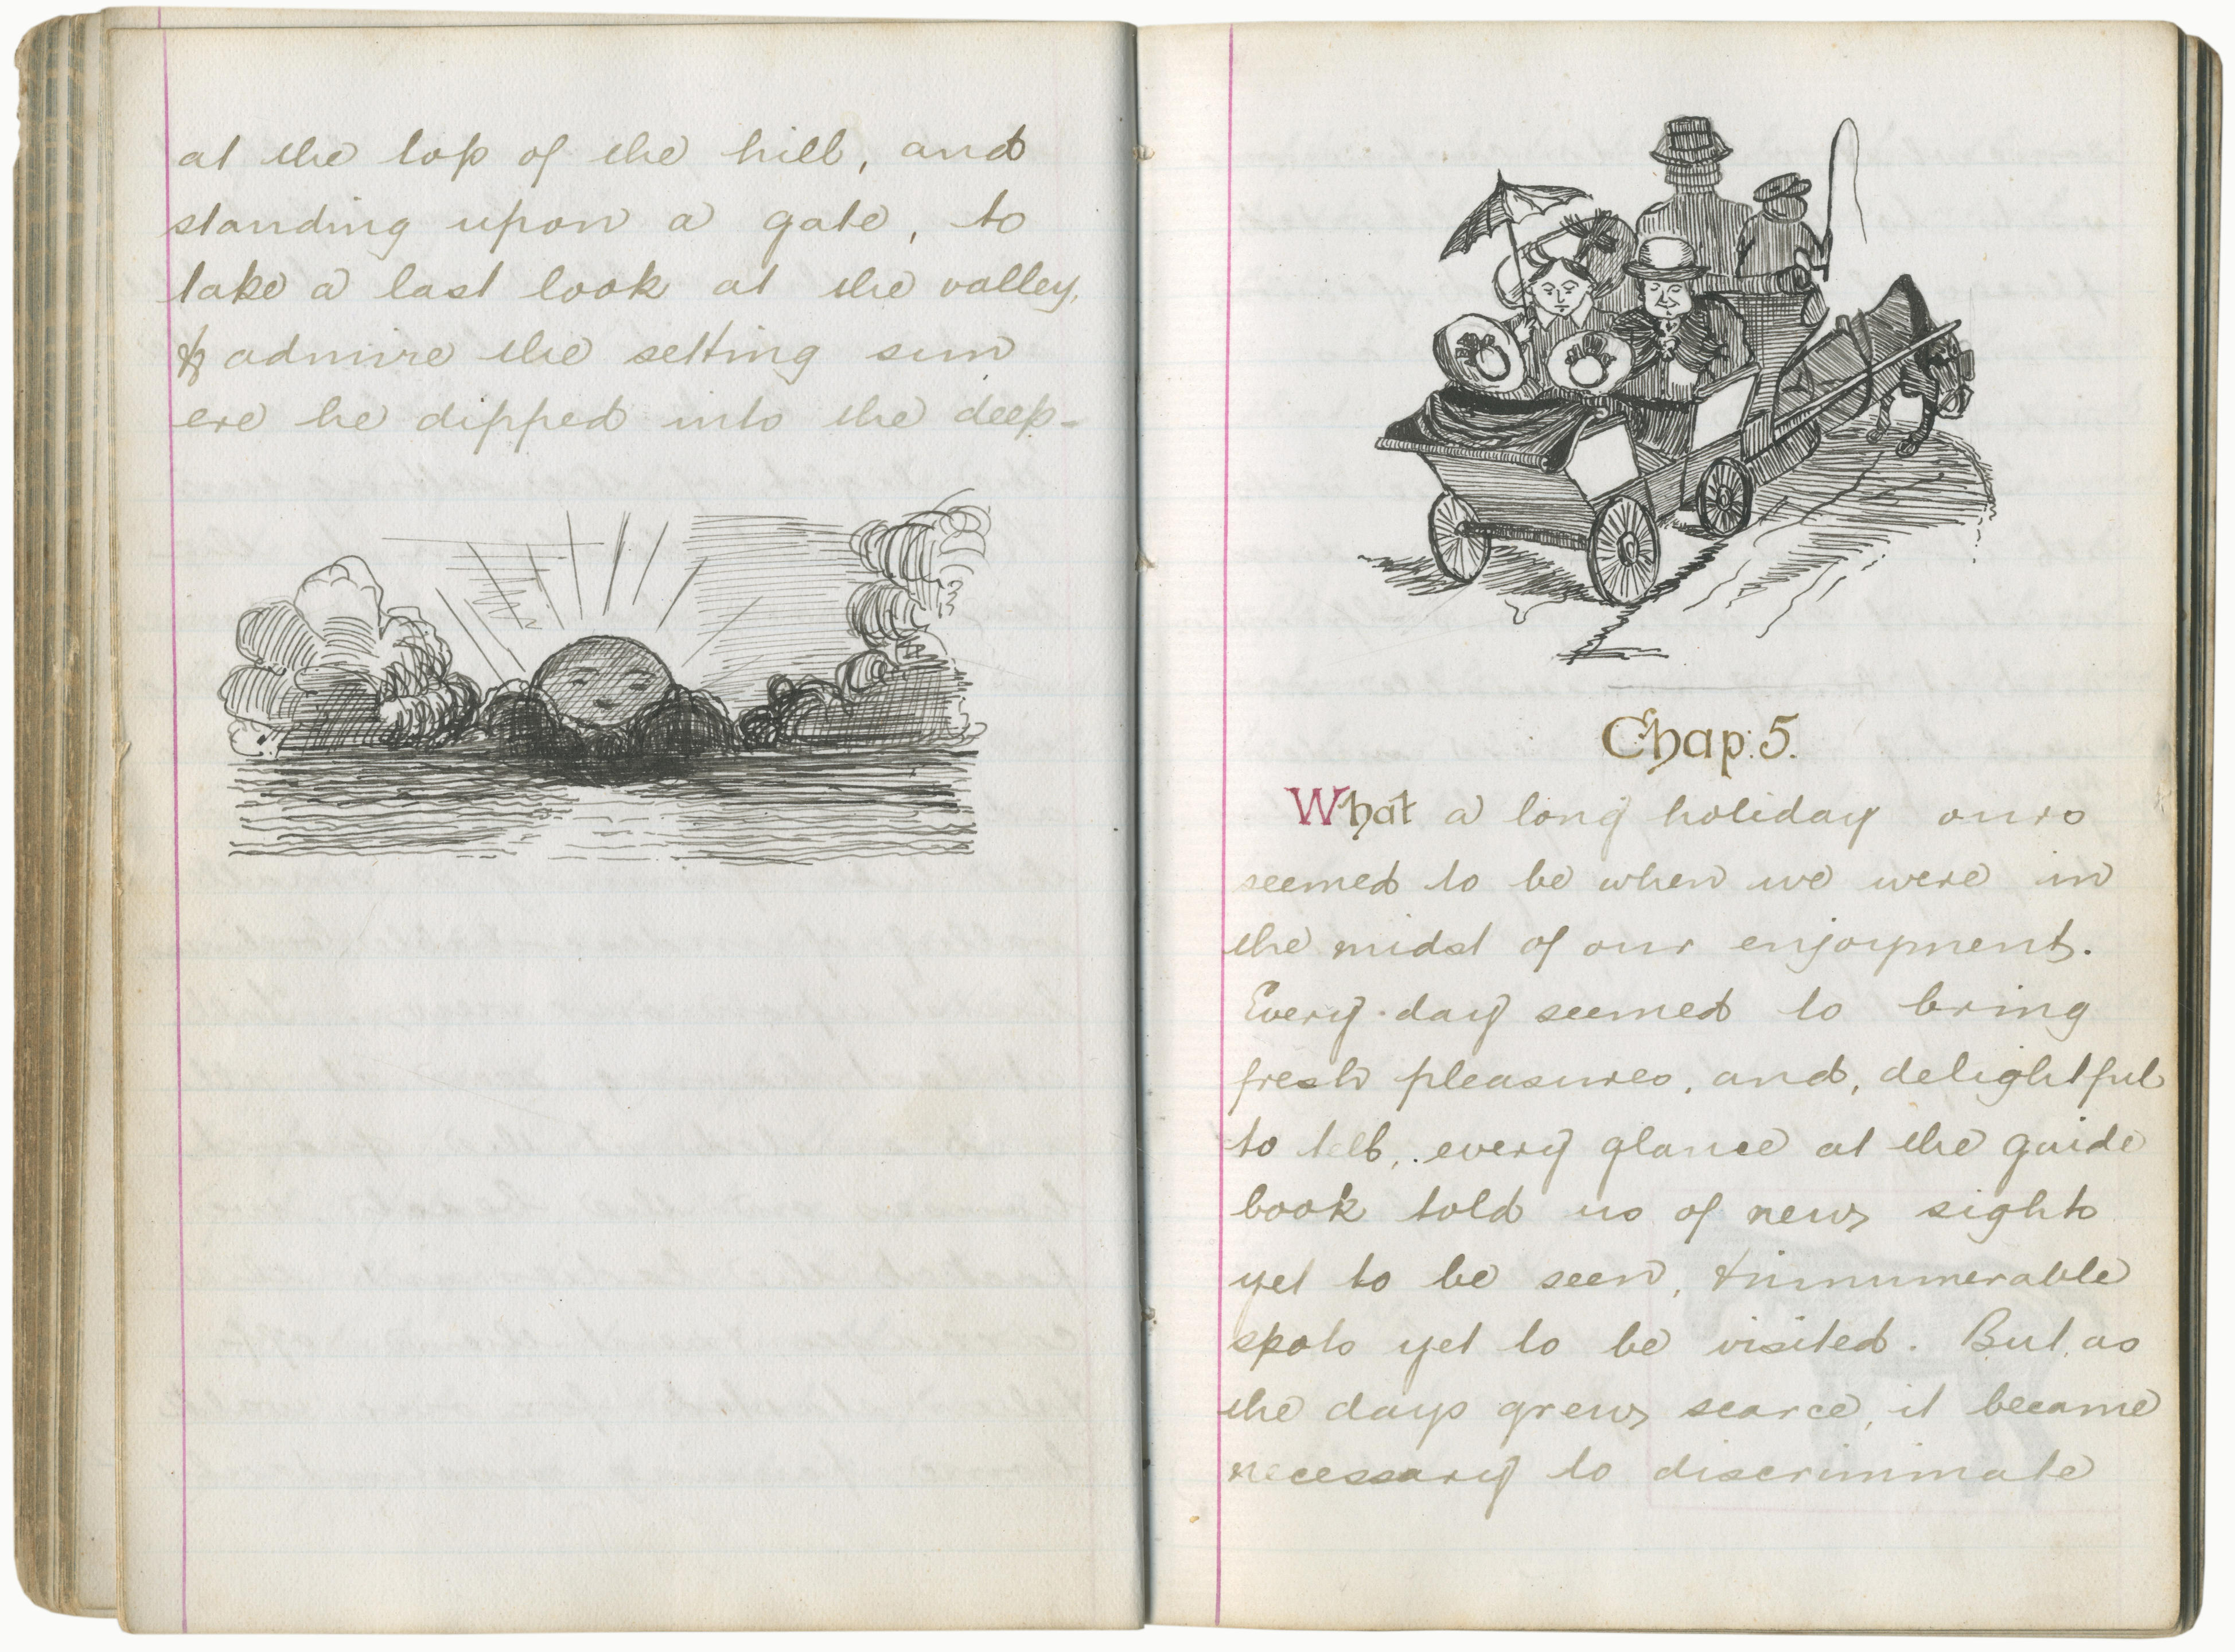 at the top of the hill, and
standing upon a gate, to
take a last look at the valley,
& admire the setting sun
ere he dipped into the deep-
Chap: 5.
What a long holiday ours
seemed to be when we were in
the midst of our enjoyment.
Every day seemed to bring
fresh pleasures, and, delightful
to tell, every glance at the guide
book told us of new sights
yet to be seen, & innumerable
spots yet to be visited. But, as
the days grew scarce, it became
necessary to discriminate